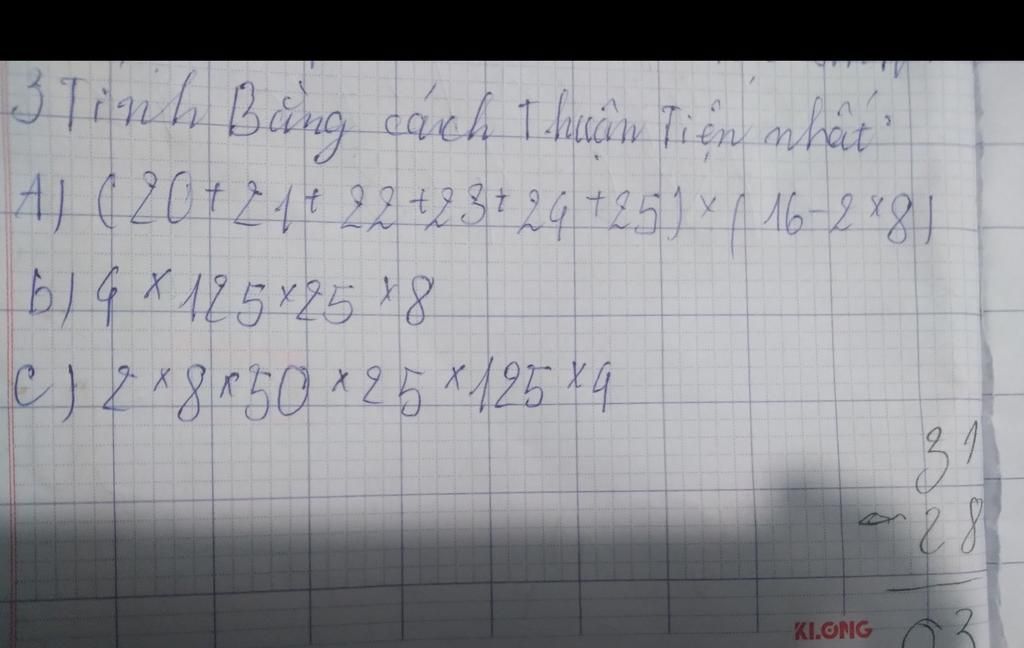 3 Tính Bằng cách Thuận Tiện nhất:
A) (20 + 21 + 22 + 23 + 24 + 25) × (16 - 2 × 8)
b) 4 × 125 × 25 × 8
c) 2 × 8 × 50 × 25 × 125 × 4
31
- 28
03
KLONG